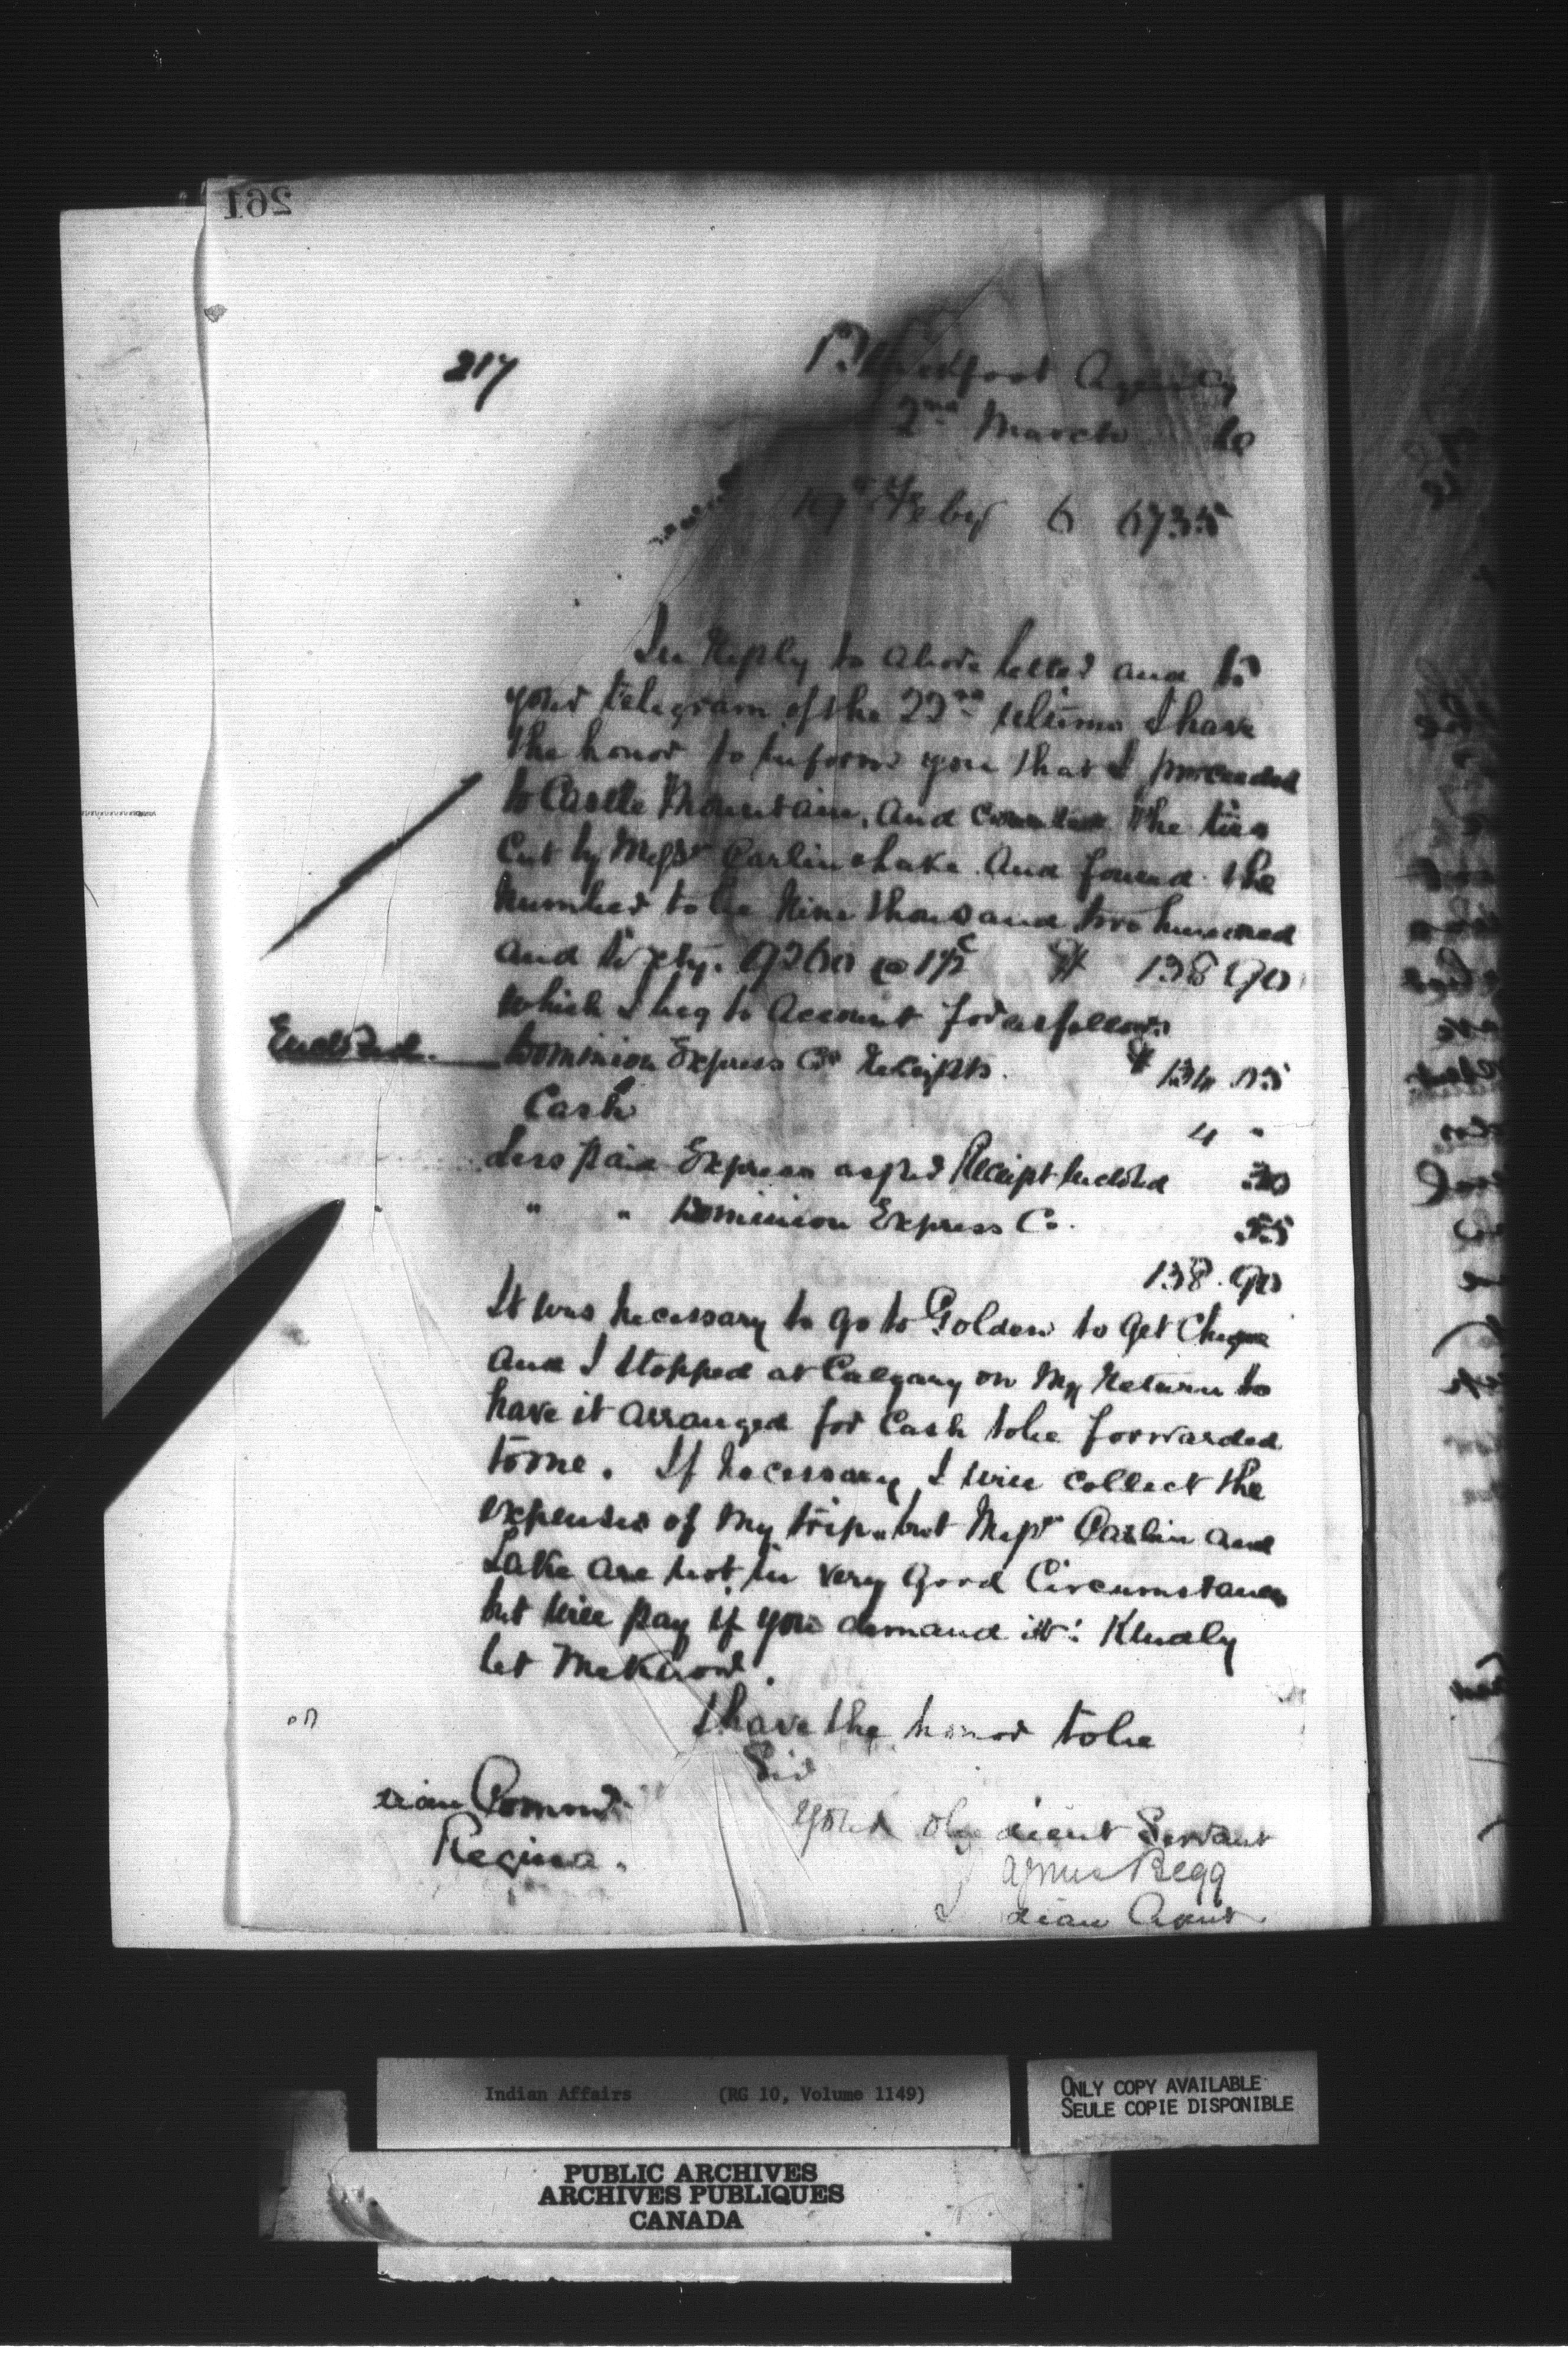 261
217
Blackfoot Agency
2nd March
19th Feby 6 6735
In Reply to above letter and to
your telegram of the 22nd ultimo I have
the honor to inform you that I proceeded
to Castle Mountain, and counted the ties
Cut by Messrs Carlin & Lake. And found the
Number to be Nine thousand two hundred
and Sixty. 9260 @ 1½c $ 138 90
which I beg to Account for as follows
Enclosed. Dominion Express Co Receipts. $ 134.05
Cash 4 "
Less paid Express as per Receipt Enclosed .30
" " Dominion Express Co. .55
138.90
It was necessary to go to Golden to get Cheque
and I stopped at Calgary on My Return to
have it arranged for Cash to be forwarded
to me. If necessary I will collect the
expenses of My trip. but Messrs Carlin and
Lake are not in very good Circumstances
but will pay if you demand it: Kindly
let Me Know.
I have the honor to be
Sir
Your obedient Servant
agnus Begg
I dian Agent
dian Commr
Regina.
Indian Affairs (RG 10, Volume 1149)
ONLY COPY AVAILABLE
SEULE COPIE DISPONIBLE
PUBLIC ARCHIVES
ARCHIVES PUBLIQUES
CANADA